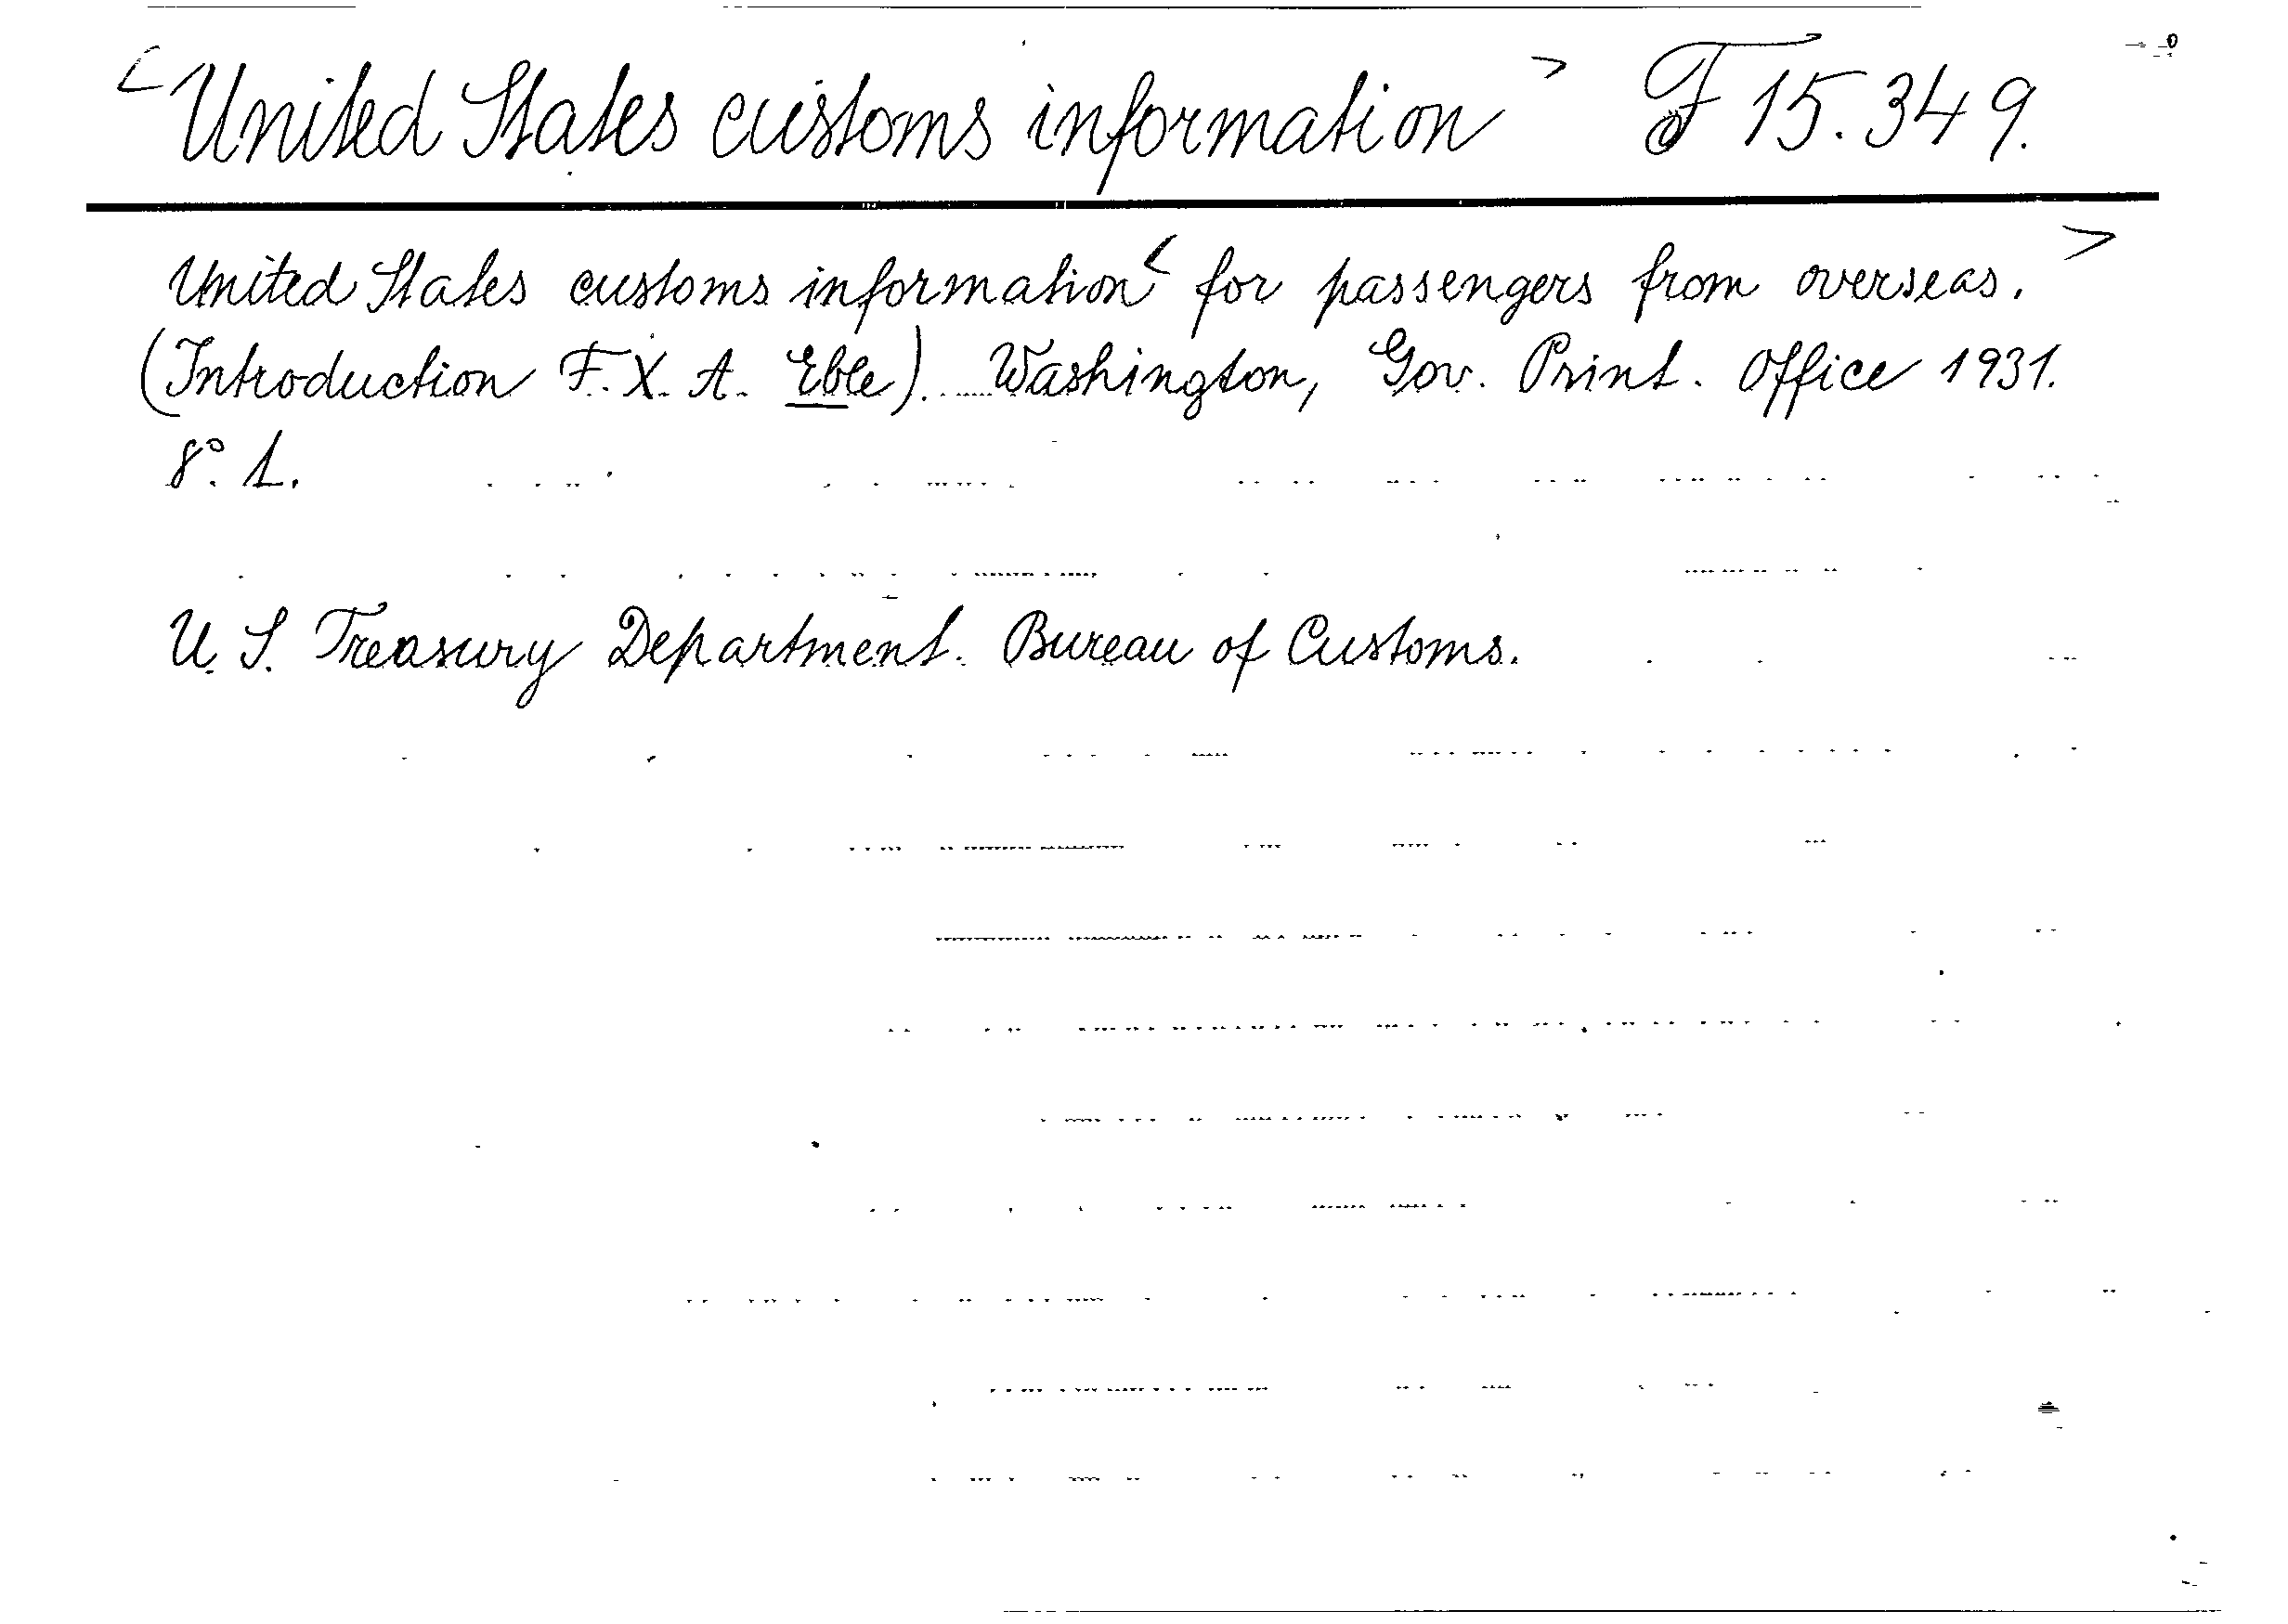 <United States customs information> F 15.349.
United States customs information< for passengers from overseas.>
(Introduction F. X. A. Eble). Washington, Gov. Print. Office 1931.
8°. L.
U. S. Treasury Department. Bureau of Customs.